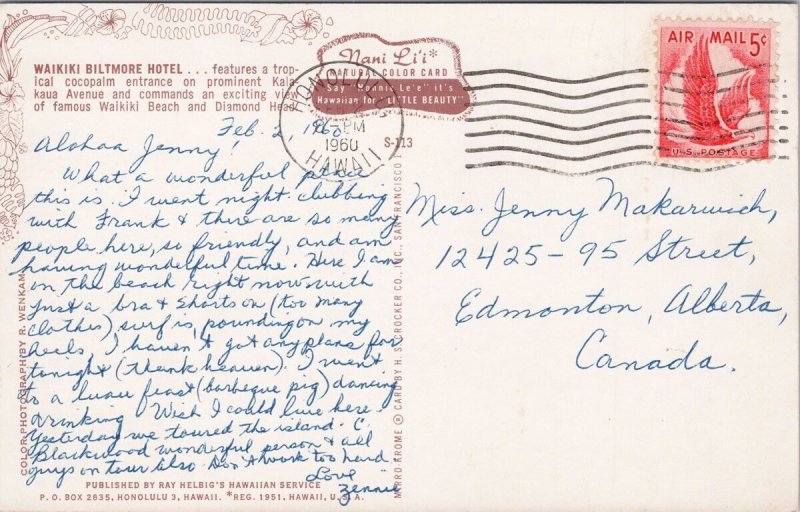 WAIKIKI BILTMORE HOTEL . . . features a trop-
ical cocopalm entrance on prominent Kala-
kaua Avenue and commands an exciting view
of famous Waikiki Beach and Diamond Head
Nani Li'i*
NATURAL COLOR CARD
Say "Nonnie Le'e" it's
Hawaiian for "LITTLE BEAUTY"
S-113
HONOLULU
PM
1960
HAWAII
AIR MAIL 5¢
U.S. POSTAGE
Feb. 2, 1960
Alohaa Jenny!
What a wonderful place
this is. I went night clubbing
with Frank & there are so many
people here, so friendly, and am
having wonderful time. Here I am
on the beach right now with
just a bra & shorts on (too many
clothes) surf is pounding on my
heels. I haven't got any plans for
tonight (thank heaven). I went
to a luau feast (barbeque pig) dancing
drinking. Wish I could live here.
Yesterday we toured the island. C.
Blackwood wonderful person & all
guys on tour also. Don't work too hard
Love
Zennie
Miss. Jenny Makarwich,
12425-95 Street,
Edmonton, Alberta,
Canada.
COLOR PHOTOGRAPH BY R. WENKAM
MIRRO-KROME ® CARD BY H. S. CROCKER CO., INC., SAN FRANCISCO 1
PUBLISHED BY RAY HELBIG'S HAWAIIAN SERVICE
P.O. BOX 2835, HONOLULU 3, HAWAII. *REG. 1951, HAWAII, U.S.A.